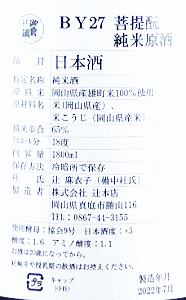 BY27 菩提酛
純米原酒
品目 日本酒
特定名称 純米酒
原料米 岡山県産雄町米100%使用
原材料名 米(岡山県産)、
米こうじ(岡山県産米)
精米歩合 65%
アルコール分 18度
内容量 1800ml
保存方法 冷暗所で保存
杜氏 辻 麻衣子(備中杜氏)
製造者 株式会社 辻本店
岡山県真庭市勝山116
TEL: 0867-44-3155
使用酵母:協会9号 日本酒度:+5
酸度:1.6 アミノ酸度:1.1
お酒は20歳になってから。
妊娠中や授乳期の飲酒はお控えください。
キャップ
(中栓)
製造年月
2022年7月